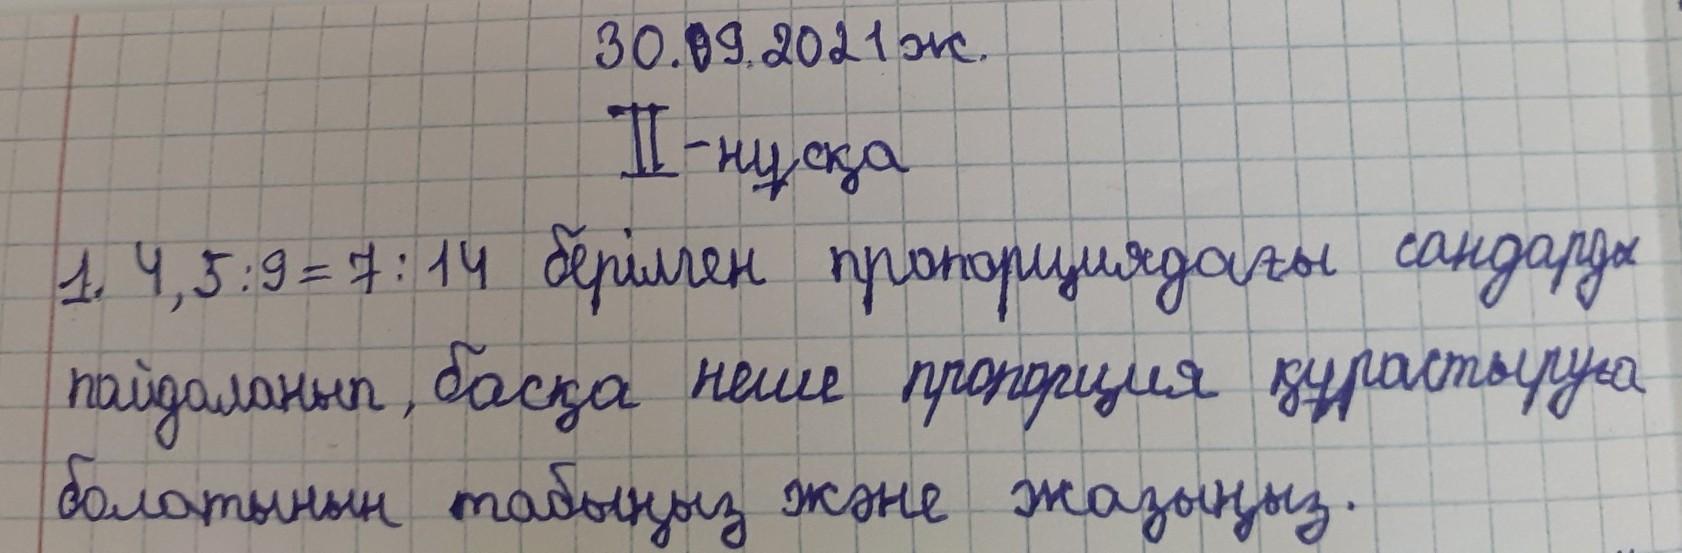 30.09.2021 ж.
II-нұсқа
1. 4,5:9=7:14 берілген пропорциядағы сандарды
пайдаланып, басқа неше пропорция құрастыруға
болатынын табыңыз және жазыңыз.